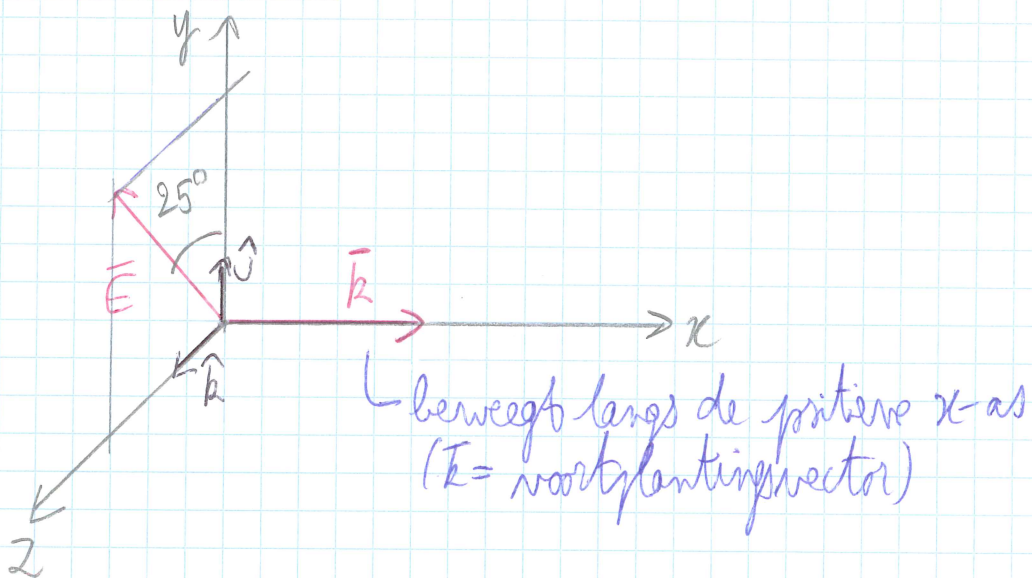 y
25°
ĵ
E̅
k̅
x
k̂
beweegt langs de positieve x-as
(k̅ = voortplantingsvector)
z